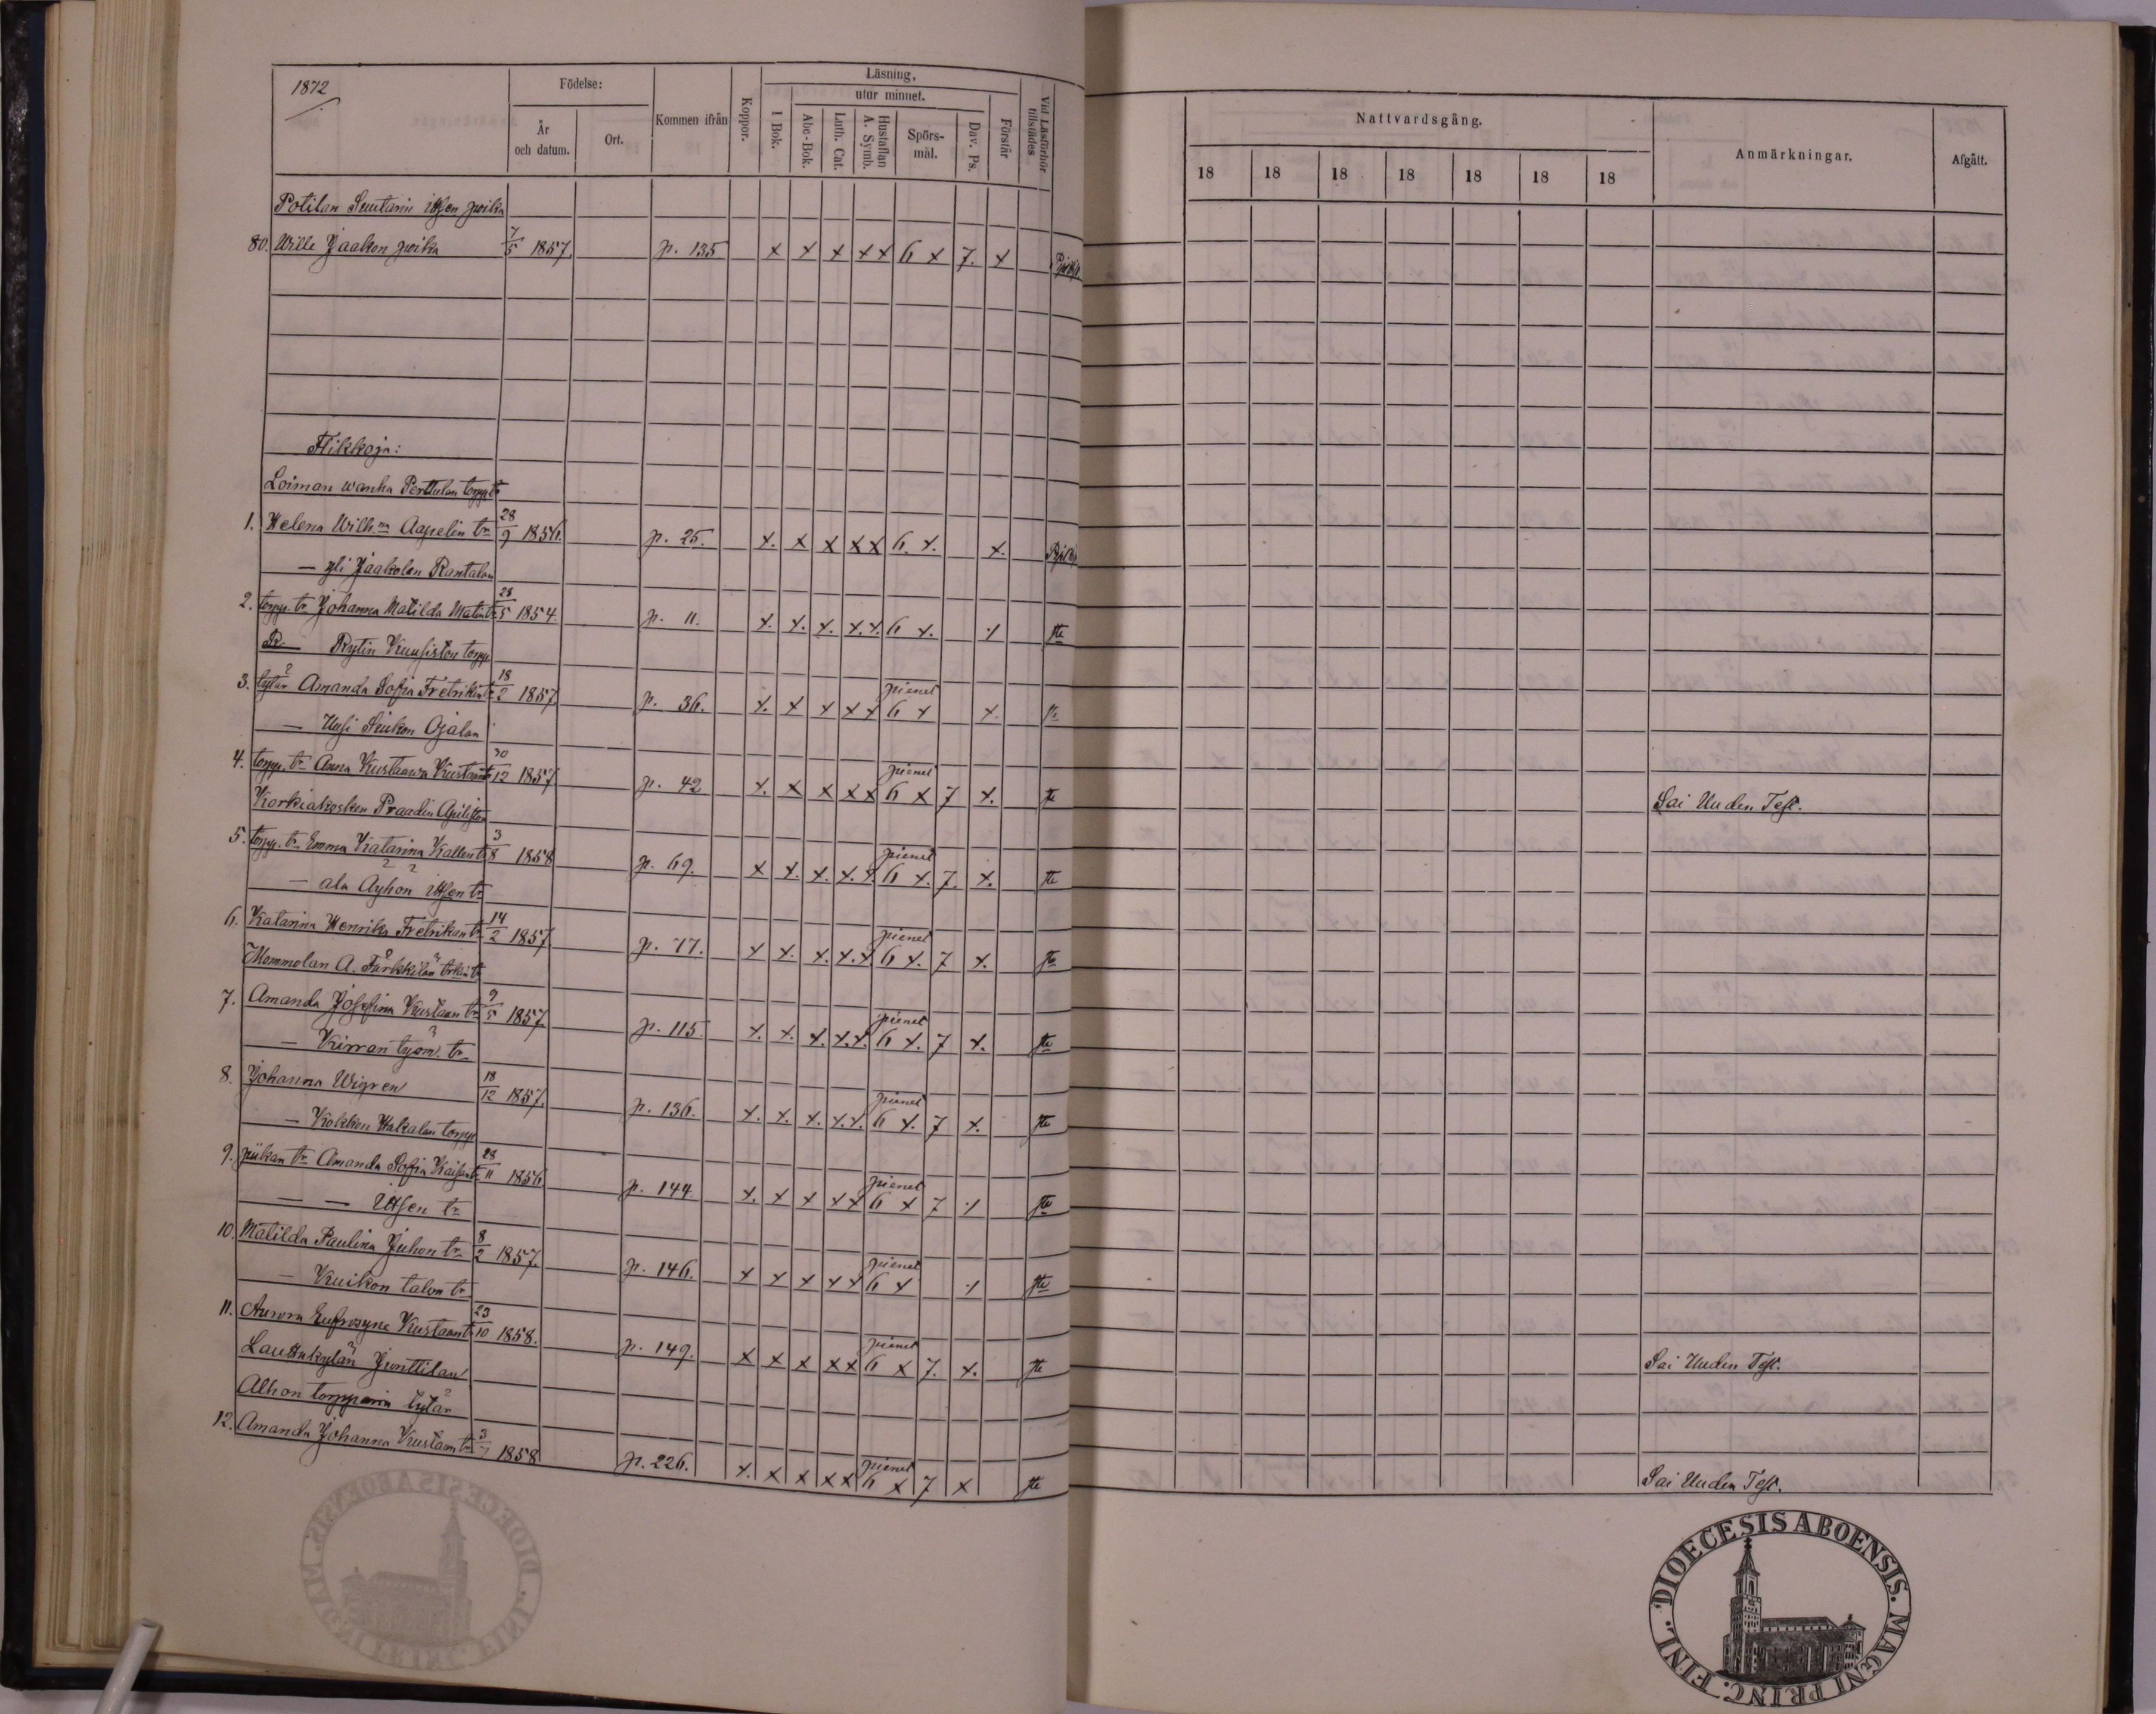 1872
Födelse:
År och datum.
Ort.
Kommen ifrån
Koppor.
Läsning,
utur minnet.
I Bok.
Abc-Bok.
Luth. Cat.
Hustaflan A. Symb.
Spörs-mål.
Dav. Ps.
Förstår
Vid Läsförhör tillstädes
Nattvardsgång.
18 18 18 18 18 18 18
Anmärkningar.
Afgått.
Potilan Suutarin itsen poika
80. Wille Jaakon poika 7/5 1857. p. 135 x x x x x 6 x 7. x
Flikkoja:
Loiman wanha Perttulan torpp. tr
1. Helena Wilh:na Aapelin tr 28/9 1856. p. 25. x. x x x x 6. x. x.
— yli Jaakolan Rantalan
2. torpp. tr Johanna Matilda Matin tr 28/5 1854. p. 11. x. x. x. x. x. 6 x. x
Rytin Kuusiston torpp.
3. tytär Amanda Sofia Fretrikin tr 18/2 1857 p. 36. x. x x x x pienet 6 x x.
— Uusi Seukon Ojalan
4. torpp. tr Anna Kustaawa Kustaan tr 30/12 1857 p. 42 x. x x x x pienet 6 x 7 x. Sai Uuden Test.
Korkiakosken Praadin
5. torpp. tr Emma Katarina Kallen tr 3/8 1858 p. 69. x x. x. x. x. pienet 6 x. 7. x.
— ala Äyhön itsen tr
6. Katarina Henrika Fretrikan tr 14/2 1857 p. 77. x x. x. x. x pienet 6 x. 7 x.
Mommolan A.
7. Amanda Josefina Kustaan tr 9/5 1857. p. 115. x. x. x. x. x. pienet 6 x. 7 x.
— Kirran työm. tr
8. Johanna Wigren 18/12 1857. p. 136. x. x. x. x. x. pienet 6 x. 7 x.
— Kokkon Hakalan torpp.
9. piikan tr Amanda Sofia Kaisan tr 28/11 1856 p. 144. x. x x x x pienet 6 x 7 x
— — Itsen tr
10. Matilda Paulina Juhon tr 8/2 1857. p. 146. x x x x x pienet 6 x x
— Kuikon talon tr
11. Aurora Eufrosyne Kustaan tr 23/10 1858. p. 149. x x x x x pienet 6 x 7. x. Sai Uuden Test.
Lauttakylän Junttilan
Alhon torpparin tytär
12. Amanda Johanna Kustaan tr 3/7 1858 p. 226. x. x x x x pienet 6 x 7 x Sai Uuden Test.
DIOECESIS ABOENSIS. MAGNI PRINC. FINL.